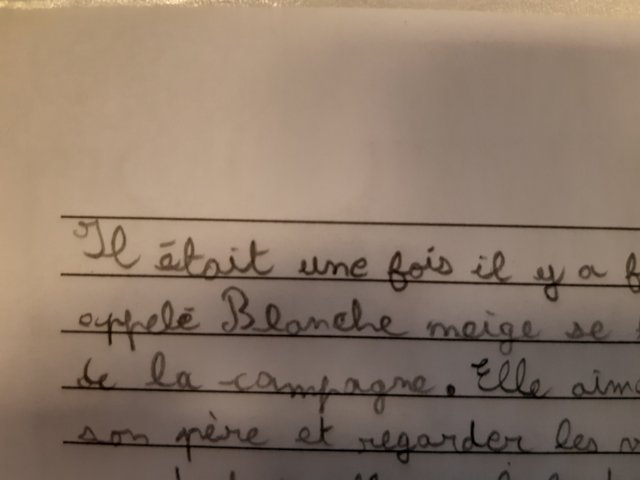 Il était une fois il y a
appelé Blanche neige se
de la campagne. Elle
son père et regarder les